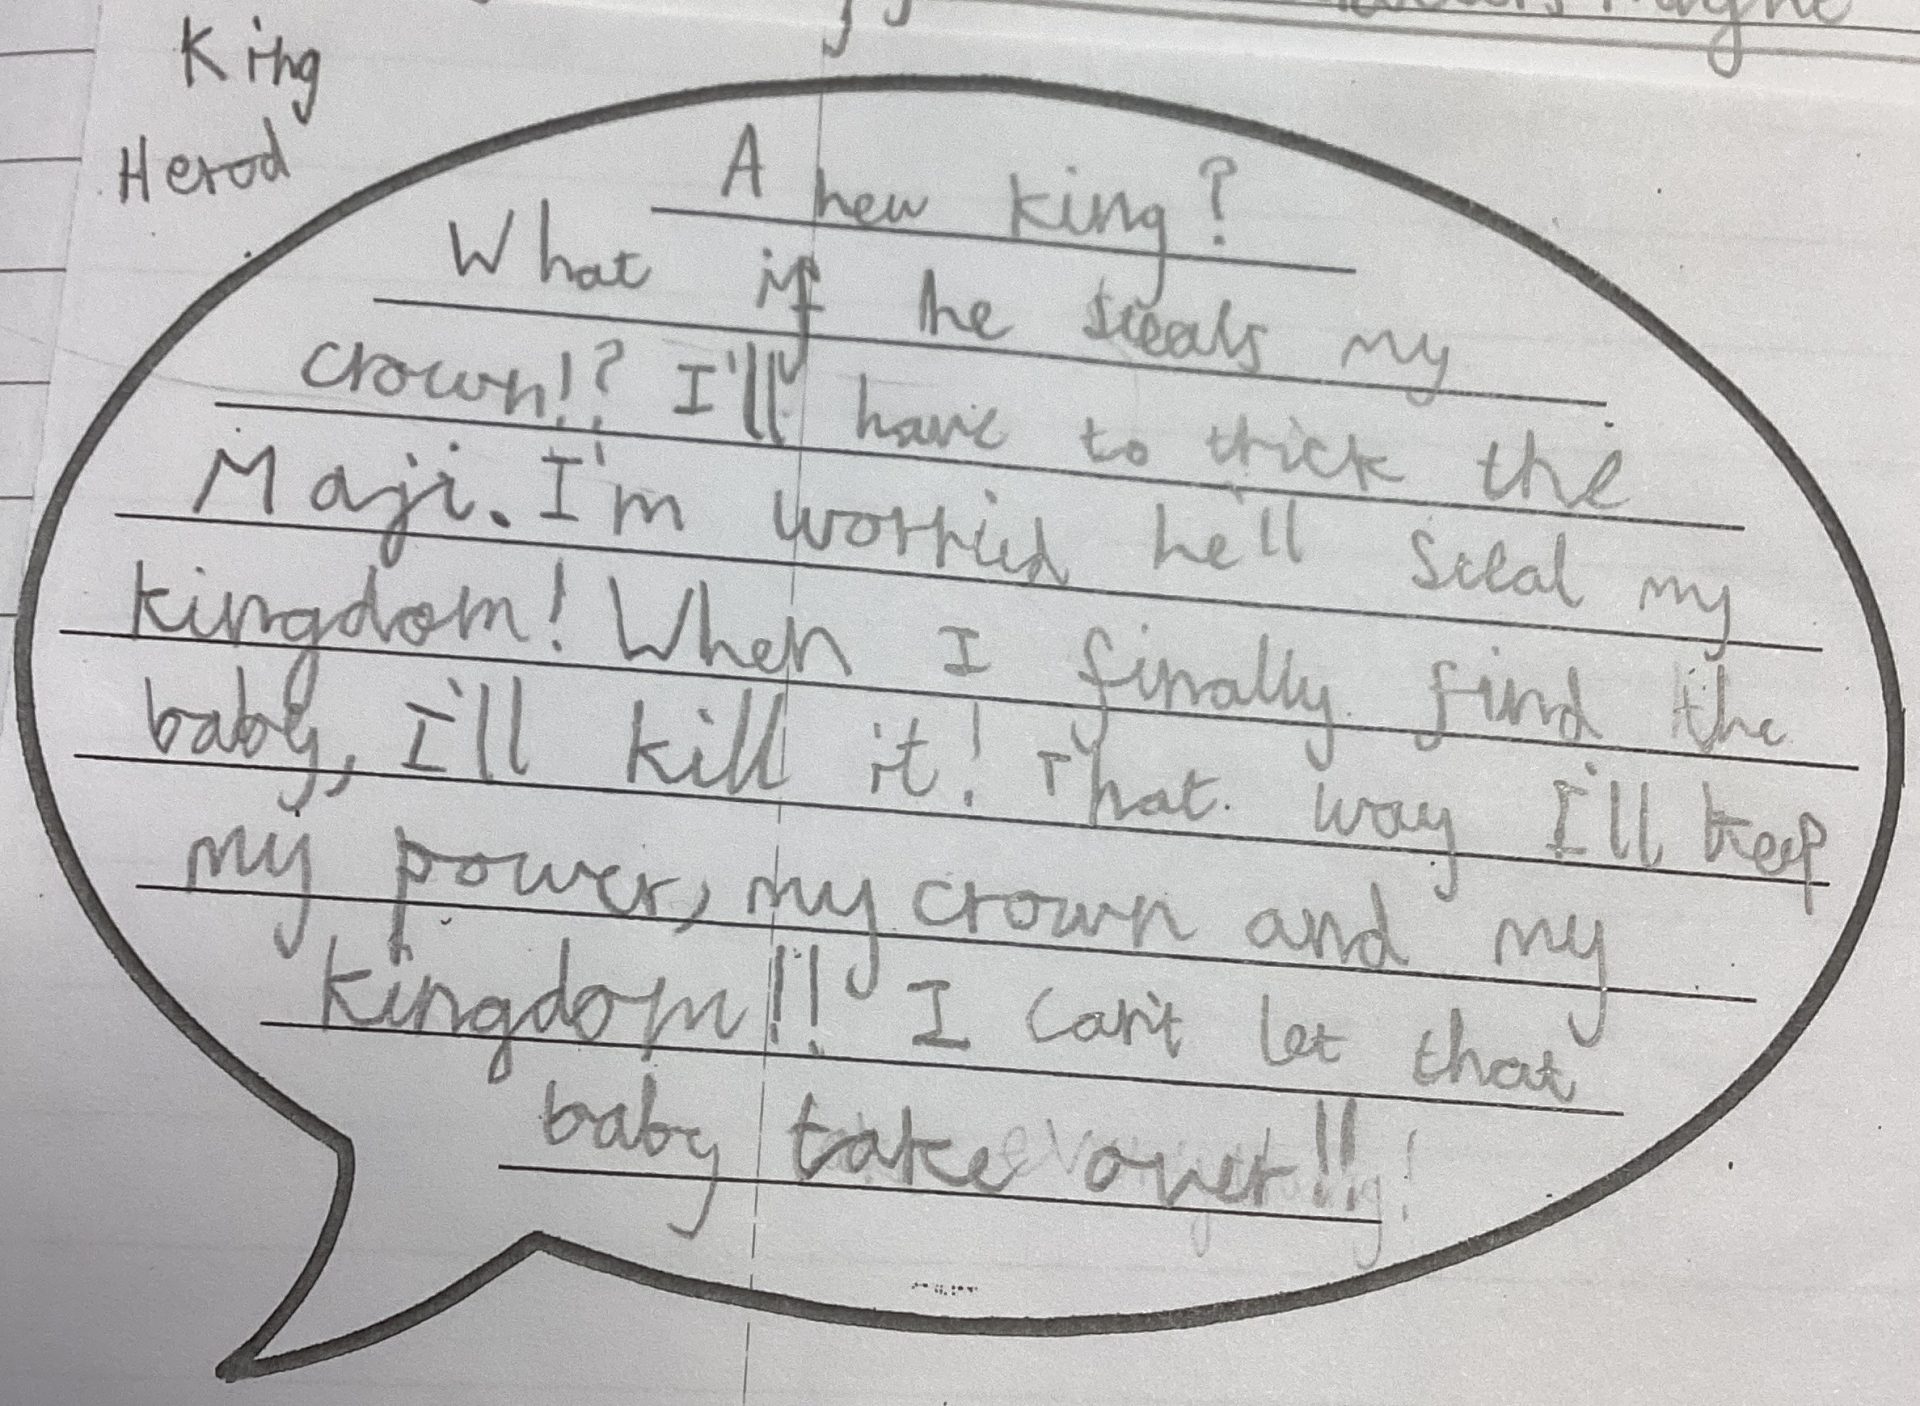 King
Herod
A new king?
What if he steals my
crown!? I'll have to trick the
Maji. I'm worried he'll steal my
kingdom! When I finally find the
baby, I'll kill it! That way I'll keep
my power, my crown and my
kingdom!! I can't let that
baby take over!!